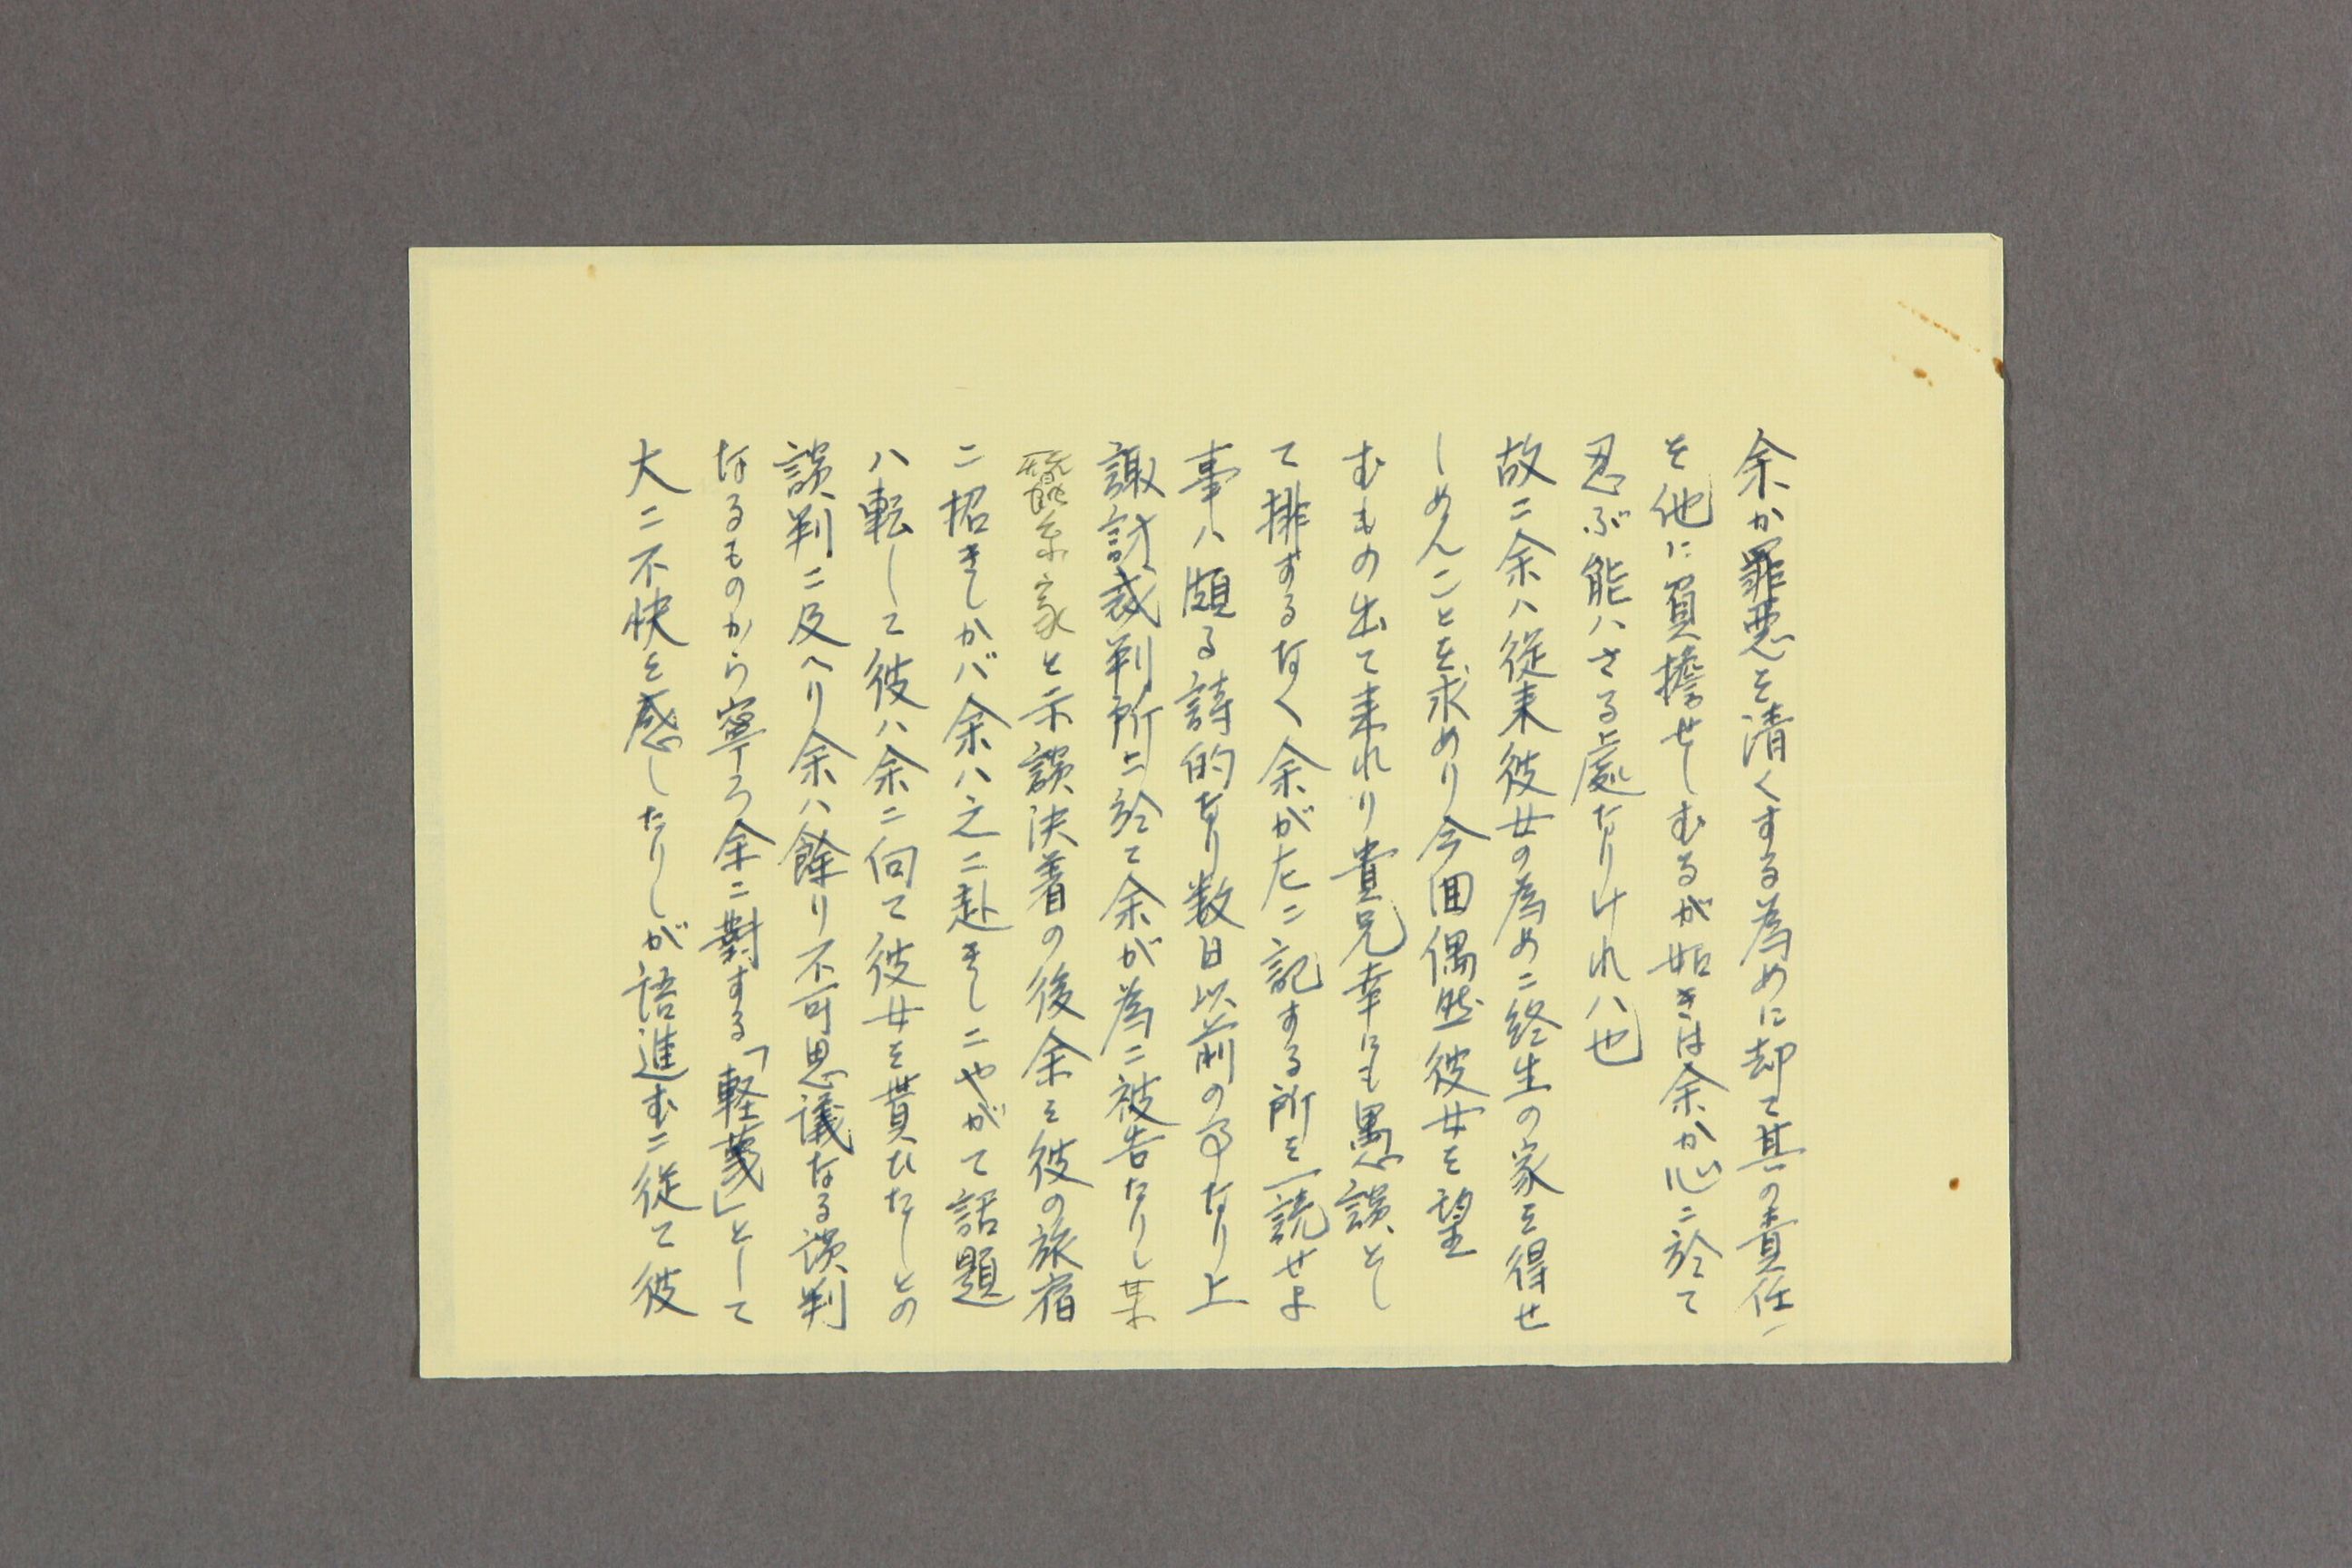 余か罪悪を清くする為めに却て其の責任
を他に負擔せしむるが如きは余か心ニ於て
忍ぶ能ハさる處なりけれハ也
故ニ余ハ従来彼女の為めニ終生の家を得せ
しめんことを求めり今囬偶然彼女を望
むもの出て来れり貴兄幸にも愚談とし
て排するなく余が左ニ記する所を一読せよ
事ハ頗る詩的なり数日以前の事なり上
諏訪裁判所ニ於て余が為ニ被告たりし某
製糸家と示談決着の後余を彼の旅宿
ニ招きしかバ余ハ之ニ赴きしニやがて話題
ハ転して彼ハ余ニ向て彼女を貰ひたしとの
談判ニ及ヘリ余ハ餘り不可思議なる談判
なるものから寧ろ余ニ對する「軽蔑」として
大ニ不快を感したりしが語進むニ従て彼